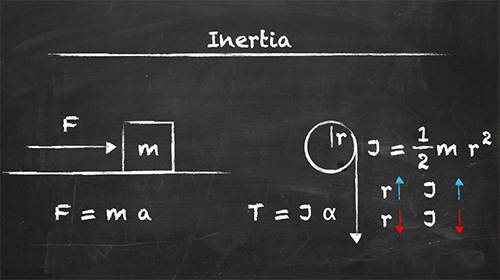 Inertia
F
m
F = m a
r
J = 1/2 m r²
r↑ J ↑
r↓ J ↓
T = J α